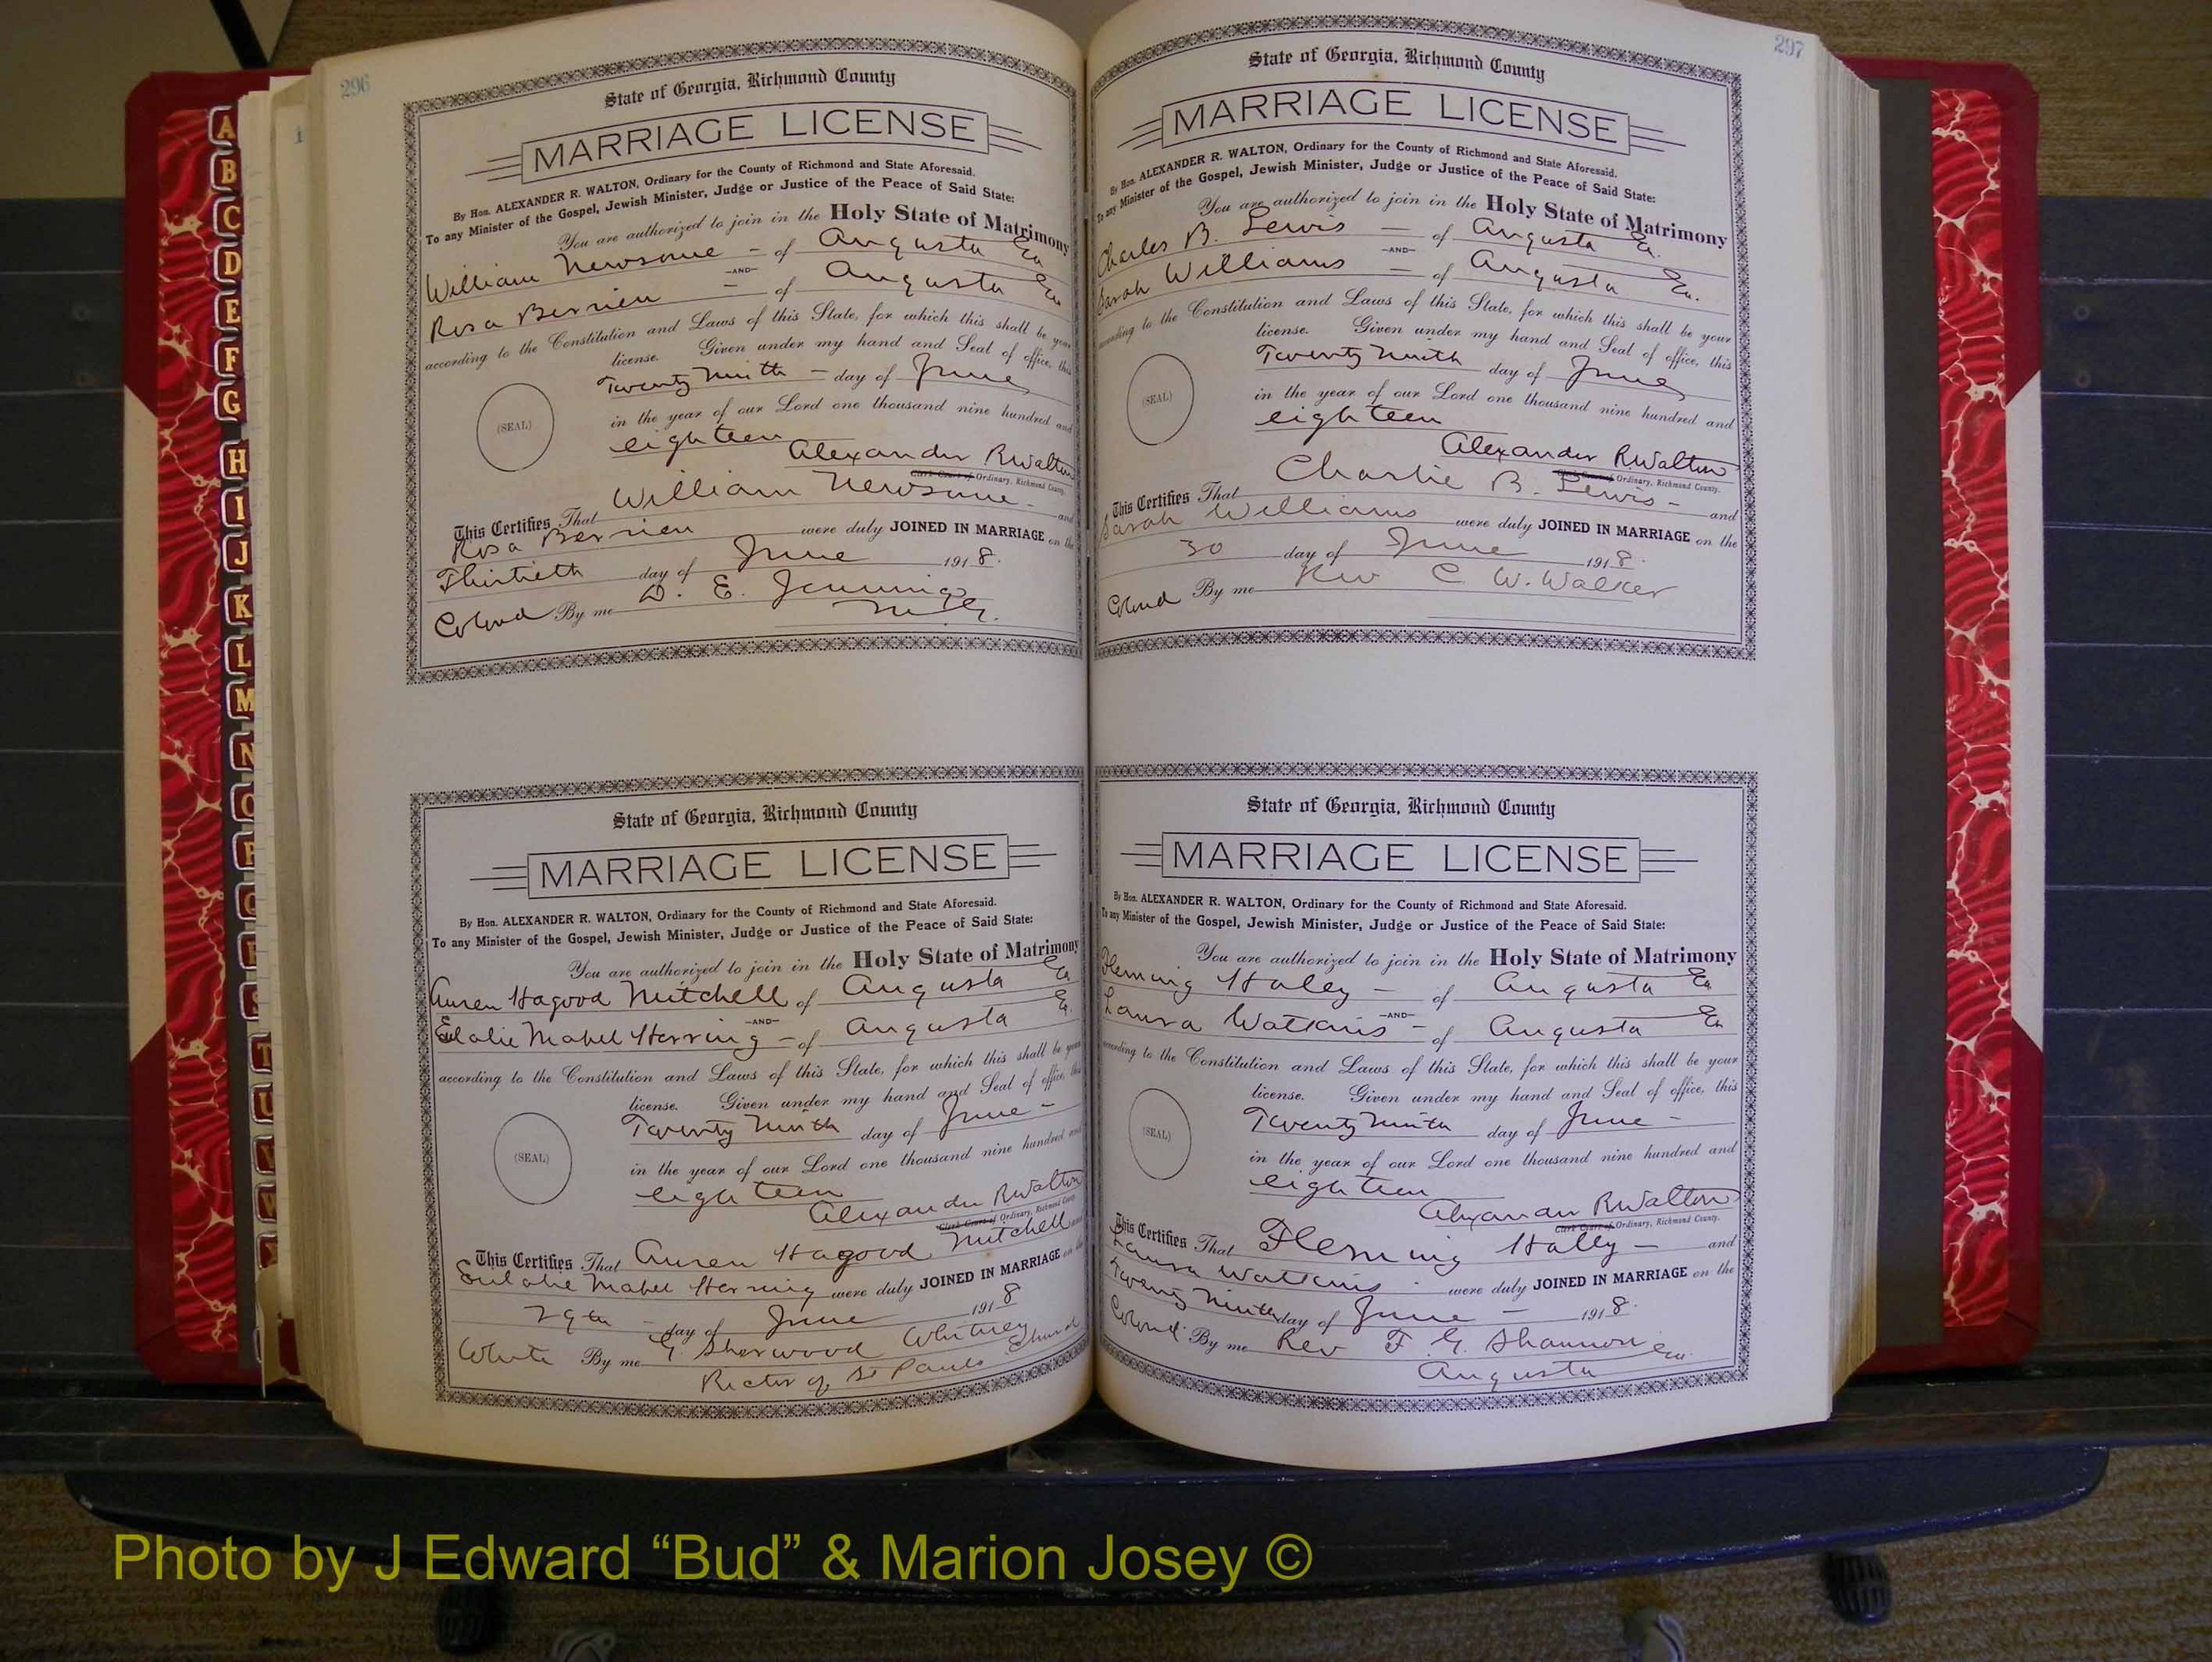 296
State of Georgia, Richmond County
MARRIAGE LICENSE
By Hon. ALEXANDER R. WALTON, Ordinary for the County of Richmond and State Aforesaid.
To any Minister of the Gospel, Jewish Minister, Judge or Justice of the Peace of Said State:
You are authorized to join in the Holy State of Matrimony
William Newsome - of Augusta Ga
-AND-
Rosa Berrien - of Augusta Ga
according to the Constitution and Laws of this State, for which this shall be your
license. Given under my hand and Seal of office, this
Twenty Ninth - day of June
(SEAL)
in the year of our Lord one thousand nine hundred and
eighteen
Alexander R Walton
Clerk Court of Ordinary, Richmond County.
This Certifies That William Newsome - and
Rosa Berrien were duly JOINED IN MARRIAGE on the
Thirtieth day of June 1918.
Colored By me D. E. Jennings
M. G.
State of Georgia, Richmond County
MARRIAGE LICENSE
By Hon. ALEXANDER R. WALTON, Ordinary for the County of Richmond and State Aforesaid.
To any Minister of the Gospel, Jewish Minister, Judge or Justice of the Peace of Said State:
You are authorized to join in the Holy State of Matrimony
Hagood Mitchell of Augusta Ga
-AND-
Eulalie Mabel Herring - of Augusta Ga.
according to the Constitution and Laws of this State, for which this shall be your
license. Given under my hand and Seal of office, this
Twenty Ninth day of June -
(SEAL)
in the year of our Lord one thousand nine hundred and
eighteen
Alexander R Walton
Clerk Court of Ordinary, Richmond County.
This Certifies That Hagood Mitchell and
Eulalie Mabel Herring were duly JOINED IN MARRIAGE on the
29th - day of June 1918
White By me G. Sherwood Whitney
Rector of St Pauls Church
297
State of Georgia, Richmond County
MARRIAGE LICENSE
By Hon. ALEXANDER R. WALTON, Ordinary for the County of Richmond and State Aforesaid.
To any Minister of the Gospel, Jewish Minister, Judge or Justice of the Peace of Said State:
You are authorized to join in the Holy State of Matrimony
Charles B. Lewis - of Augusta Ga.
-AND-
Sarah Williams - of Augusta Ga.
according to the Constitution and Laws of this State, for which this shall be your
license. Given under my hand and Seal of office, this
Twenty Ninth day of June
(SEAL)
in the year of our Lord one thousand nine hundred and
eighteen
Alexander R Walton
Clerk Court of Ordinary, Richmond County.
This Certifies That Charlie B. Lewis - and
Sarah Williams were duly JOINED IN MARRIAGE on the
30 day of June 1918.
Colored By me Rev C. W. Walker
State of Georgia, Richmond County
MARRIAGE LICENSE
By Hon. ALEXANDER R. WALTON, Ordinary for the County of Richmond and State Aforesaid.
To any Minister of the Gospel, Jewish Minister, Judge or Justice of the Peace of Said State:
You are authorized to join in the Holy State of Matrimony
Fleming Haley - of Augusta Ga
-AND-
Laura Watkins - of Augusta Ga
according to the Constitution and Laws of this State, for which this shall be your
license. Given under my hand and Seal of office, this
Twenty Ninth day of June -
(SEAL)
in the year of our Lord one thousand nine hundred and
eighteen
Alexander R Walton
Clerk Court of Ordinary, Richmond County.
This Certifies That Fleming Hally - and
Laura Watkins were duly JOINED IN MARRIAGE on the
Twenty Ninth day of June - 1918.
Colored By me Rev F. G. Shannon
Augusta Ga.
A
B
C
D
E
F
G
H
I
J
K
L
M
N
O
P
Q
R
S
T
U
V
W
Photo by J Edward “Bud” & Marion Josey ©